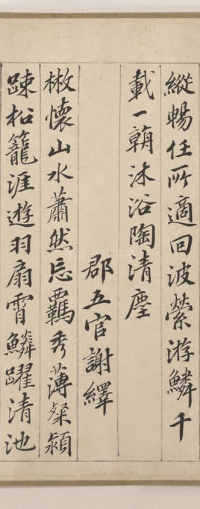 縱暢任所適回波縈游鱗千
載一朝沐浴陶清塵
郡五官謝繹
㪚懷山水蕭然忘羈秀薄粲穎
踈松籠涯遊羽扇霄鱗躍清池